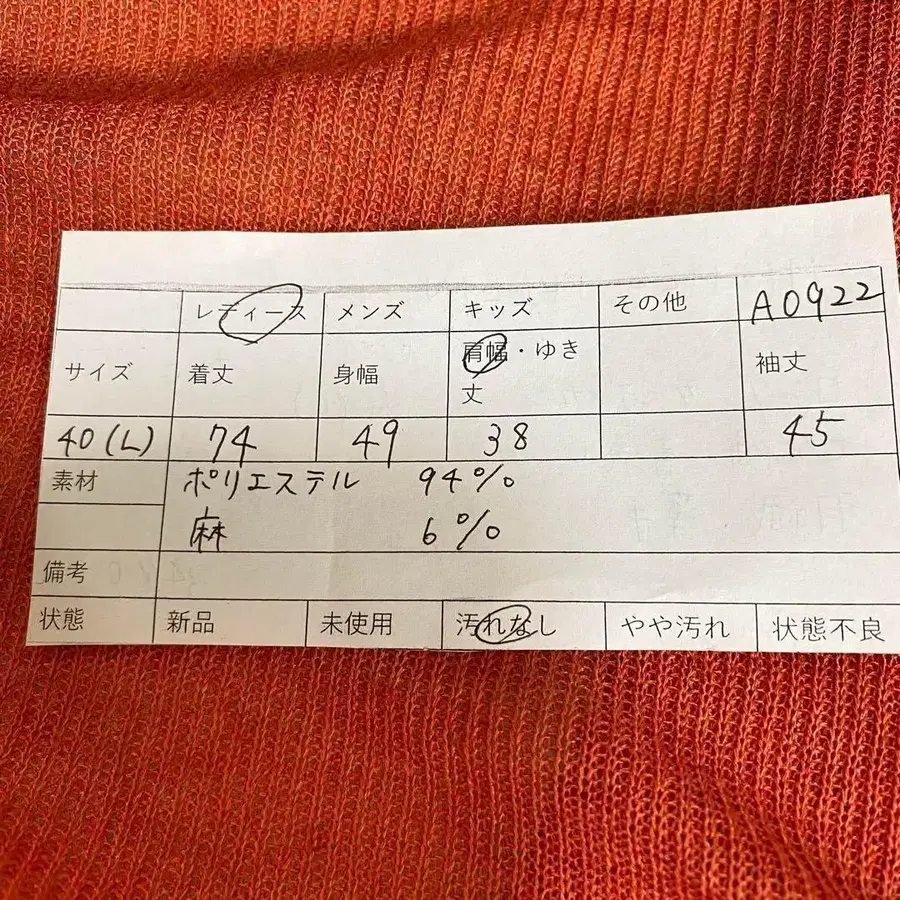 レディース メンズ キッズ その他 A0922
サイズ 着丈 身幅 肩幅・ゆき丈 袖丈
40(L) 74 49 38 45
素材 ポリエステル 94%
麻 6%
備考
状態 新品 未使用 汚れなし やや汚れ 状態不良